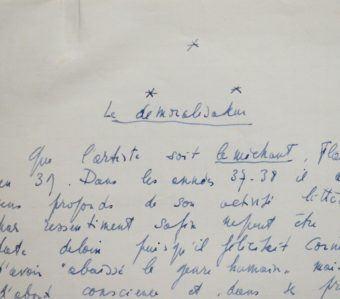 Le démoralisateur
Que l'artiste soit le méchant, Fla
en 31. Dans les années 37-38 il a
sens profonds de son activité litté
par ressentiment
date de loin puisqu'il félicitait Corne
d'avoir "abaissé le genre humain" mai
d'abord conscience et dans le pr